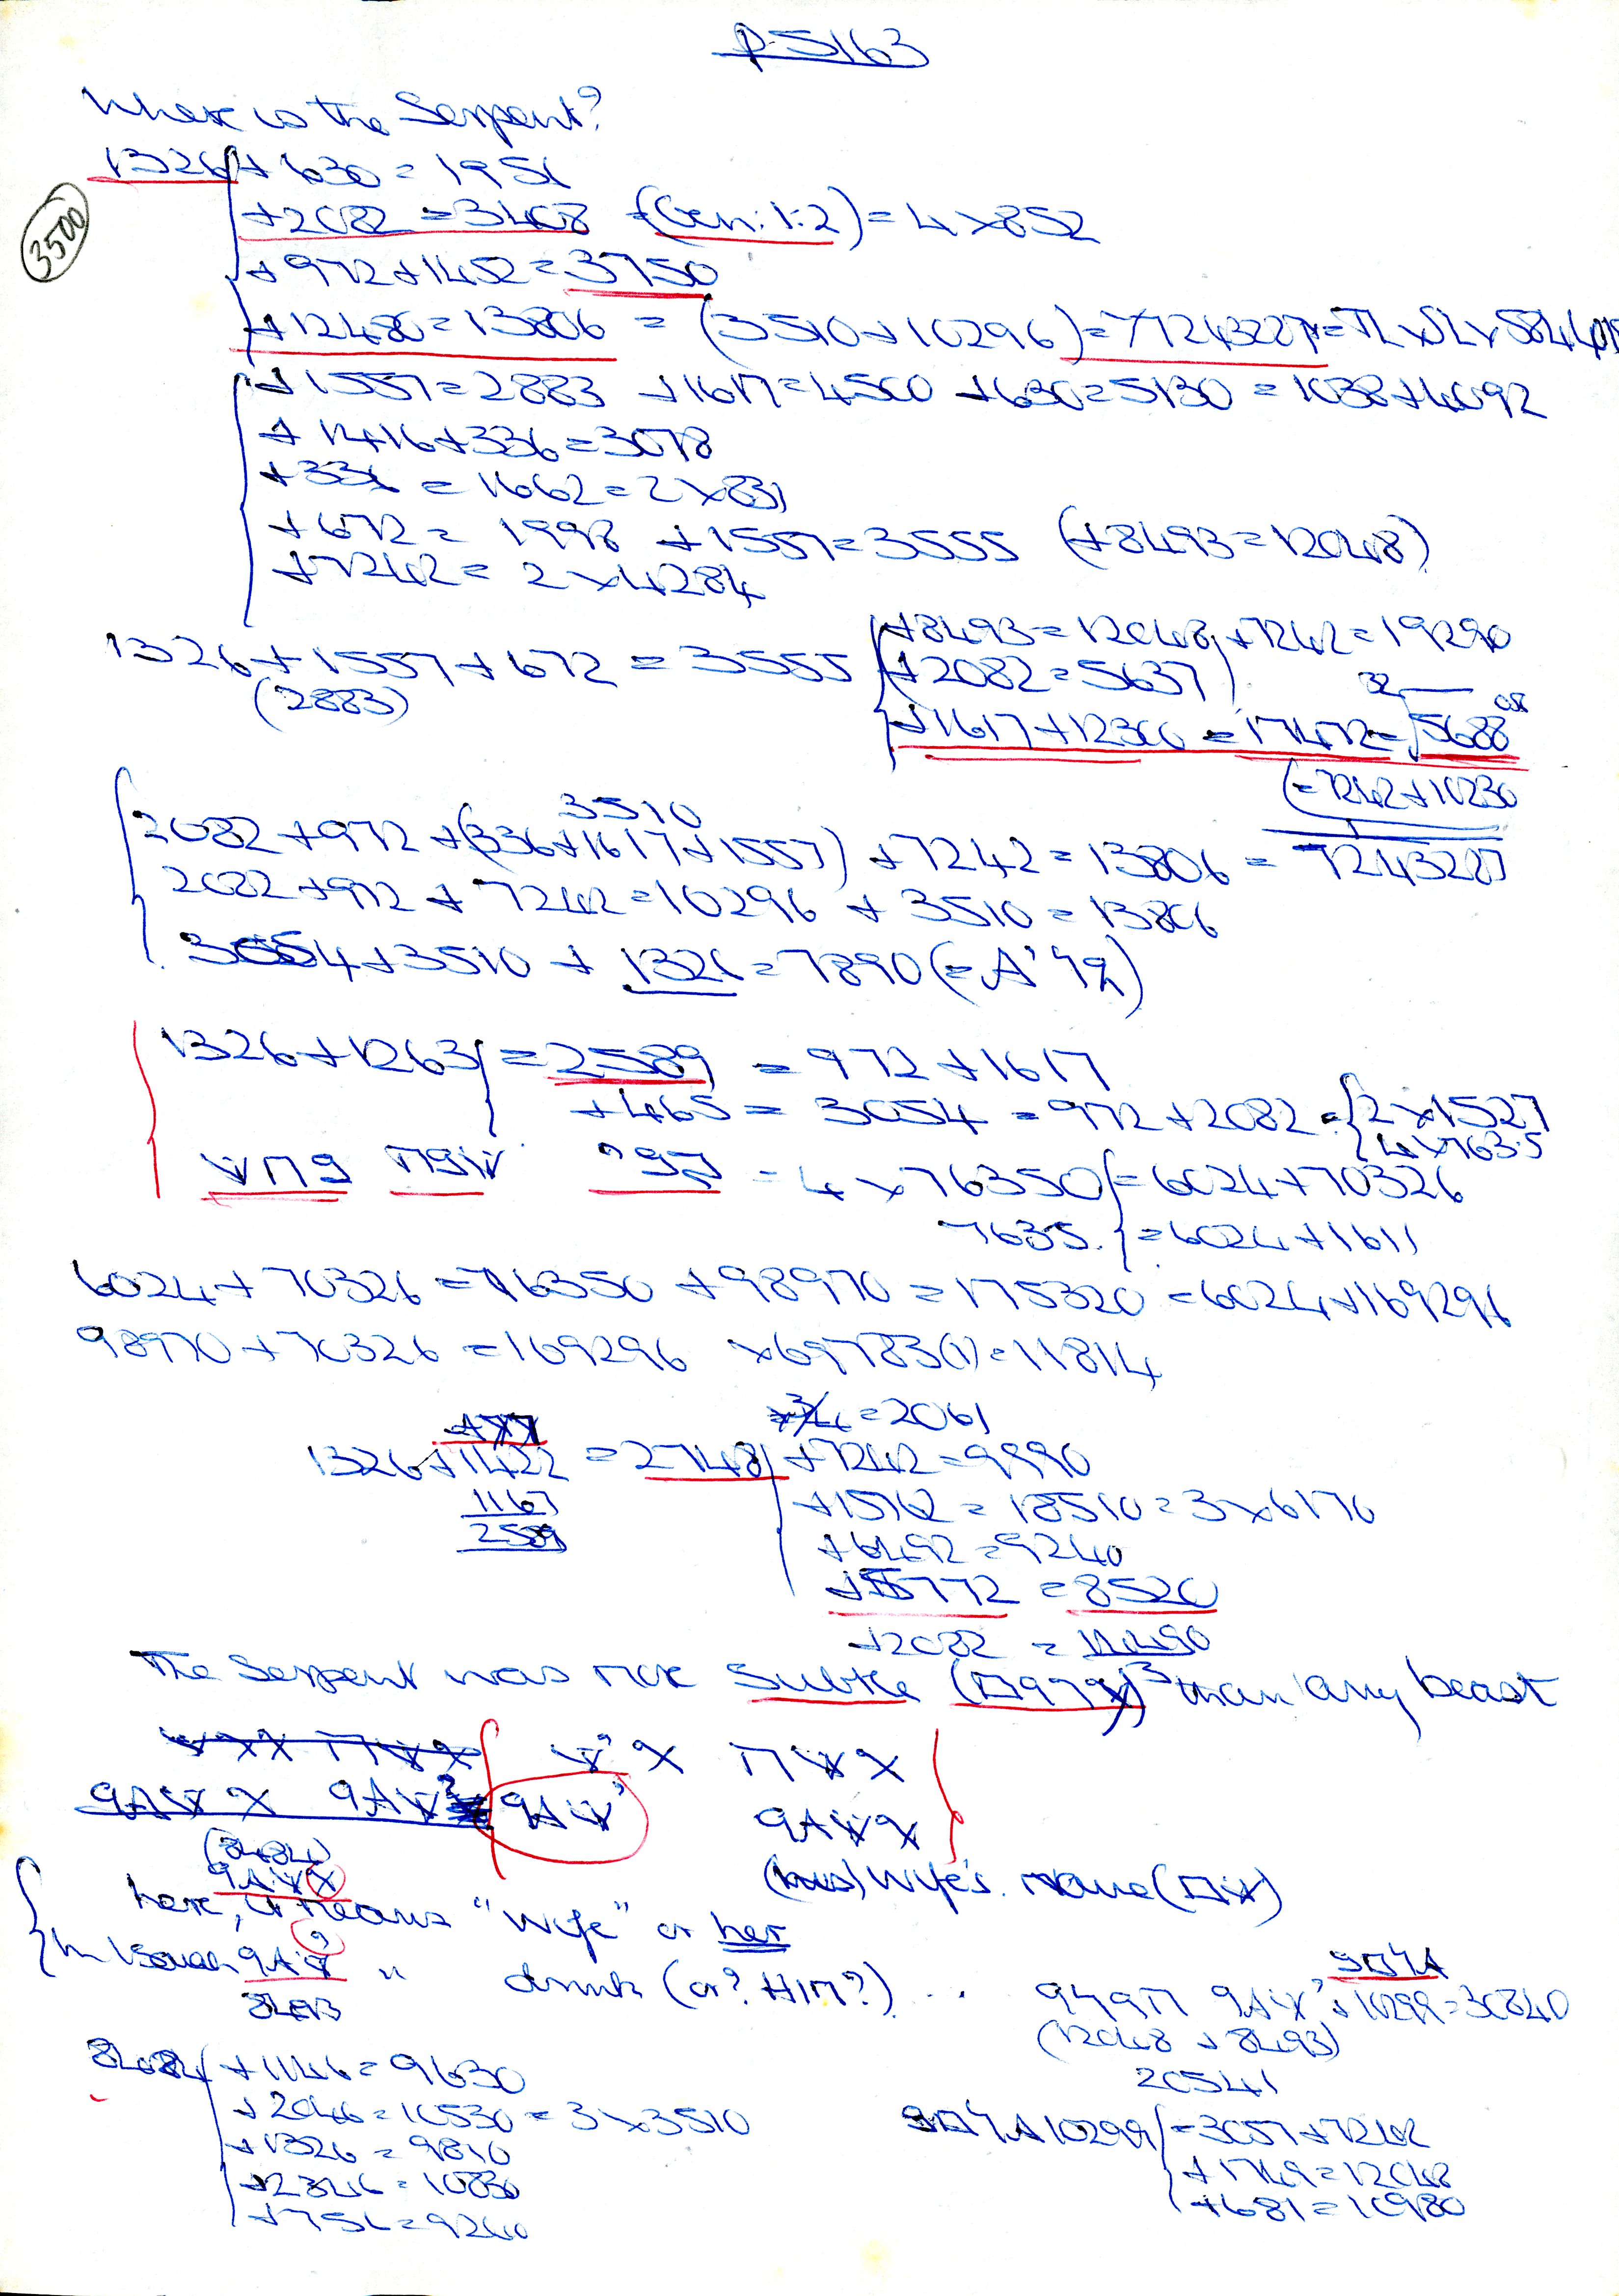 p-5163
Where is the Serpent?
3500
1326 + 630 = 1956
+2082 = 3408 = (Gen: 1:2) = 4 x 852
+972 + 1452 = 3750
+12480 = 13806 = (3510 + 10296) =
+1557 = 2883 + 1617 = 4500 + 630 = 5130 = 1038 + 4092
+1416 + 336 = 3078
+336 = 1662 = 2 x 831
+672 = 1998 + 1557 = 3555 (+8493 = 12048)
+7242 = 2 x 4284
1326 + 1557 + 672 = 3555
(2883)
+8493 = 12048 + 7242 = 19290
+2082 = 5637
+1617 + 12300 = 17472 =
(= 7242 + 10230
3510
2082 + 972 + (336 + 1617 + 1557) + 7242 = 13806 =
2082 + 972 + 7242 = 10296 + 3510 = 13806
3054 + 3510 + 1326 = 7890
1326 + 1263 = 2589 = 972 + 1617
+465 = 3054 = 972 + 2082 = 2 x 1527
4 x 763.5
= 4 x 76350 = 6024 + 70326
7635. = 6024 + 1611
6024 + 70326 = 76350 + 98970 = 175320 = 6024 + 169296
98970 + 70326 = 169296 x 69783(1) = 11814
x 3/4 = 2061
1326 + 1422 = 2748 + 7242 = 9990
1167
2589
+15762 = 18510 = 3 x 6170
+6492 = 9240
+5772 = 8520
+2082 =
The Serpent was more Subtle than any beast
(8484)
(his) Wife's name
here, it means "Wife" or her
In Isaiah " drink (or? HIM?) ...
8493
+10299 = 30840
(12048 + 8493)
20541
8484 + 1146 = 9630
+2046 = 10530 = 3 x 3510
+1326 = 9810
+2346 = 10830
+756 = 9240
10299 = 3057 + 7242
+1749 = 12048
+681 = 10980